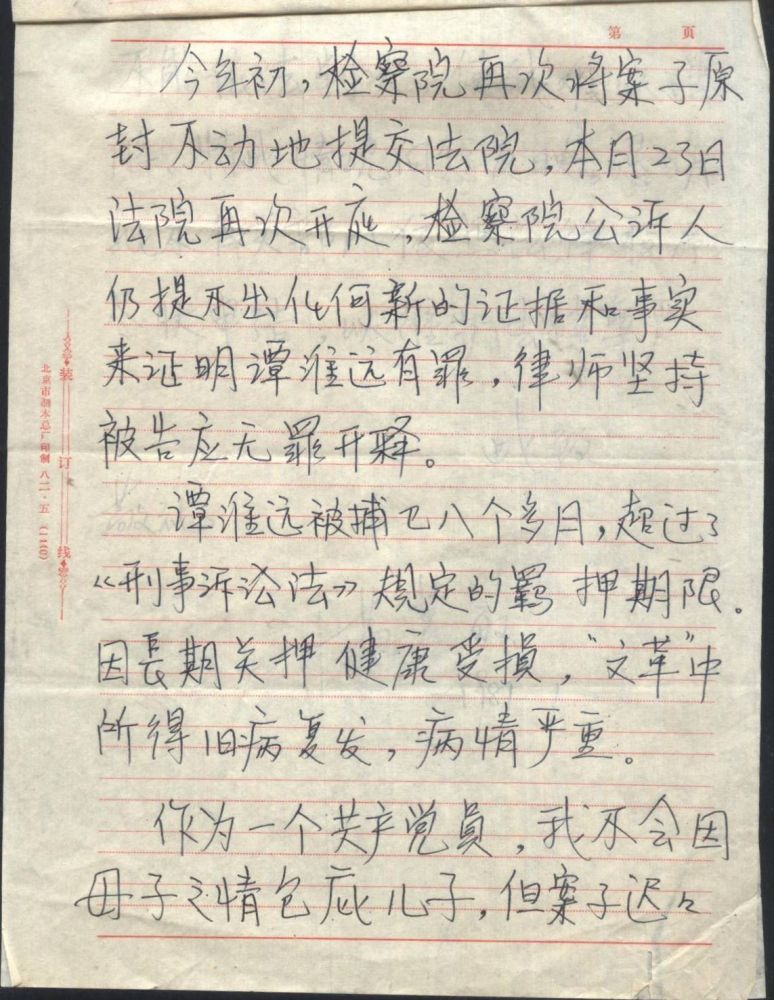 第 页
今年初，检察院再次将案子原
封不动地提交法院，本月23日
法院再次开庭，检察院公诉人
仍提不出任何新的证据和事实
来证明谭淮远有罪，律师坚持
被告应无罪开释。
谭淮远被捕已八个多月，超过了
《刑事诉讼法》规定的羁押期限。
因長期关押健康受損，“文革”中
所得旧病复发，病情严重。
作为一个共产党員，我不会因
母子之情包庇儿子，但案子迟々
装 订 线
北京市制本总厂印制 八二·五 (1140)